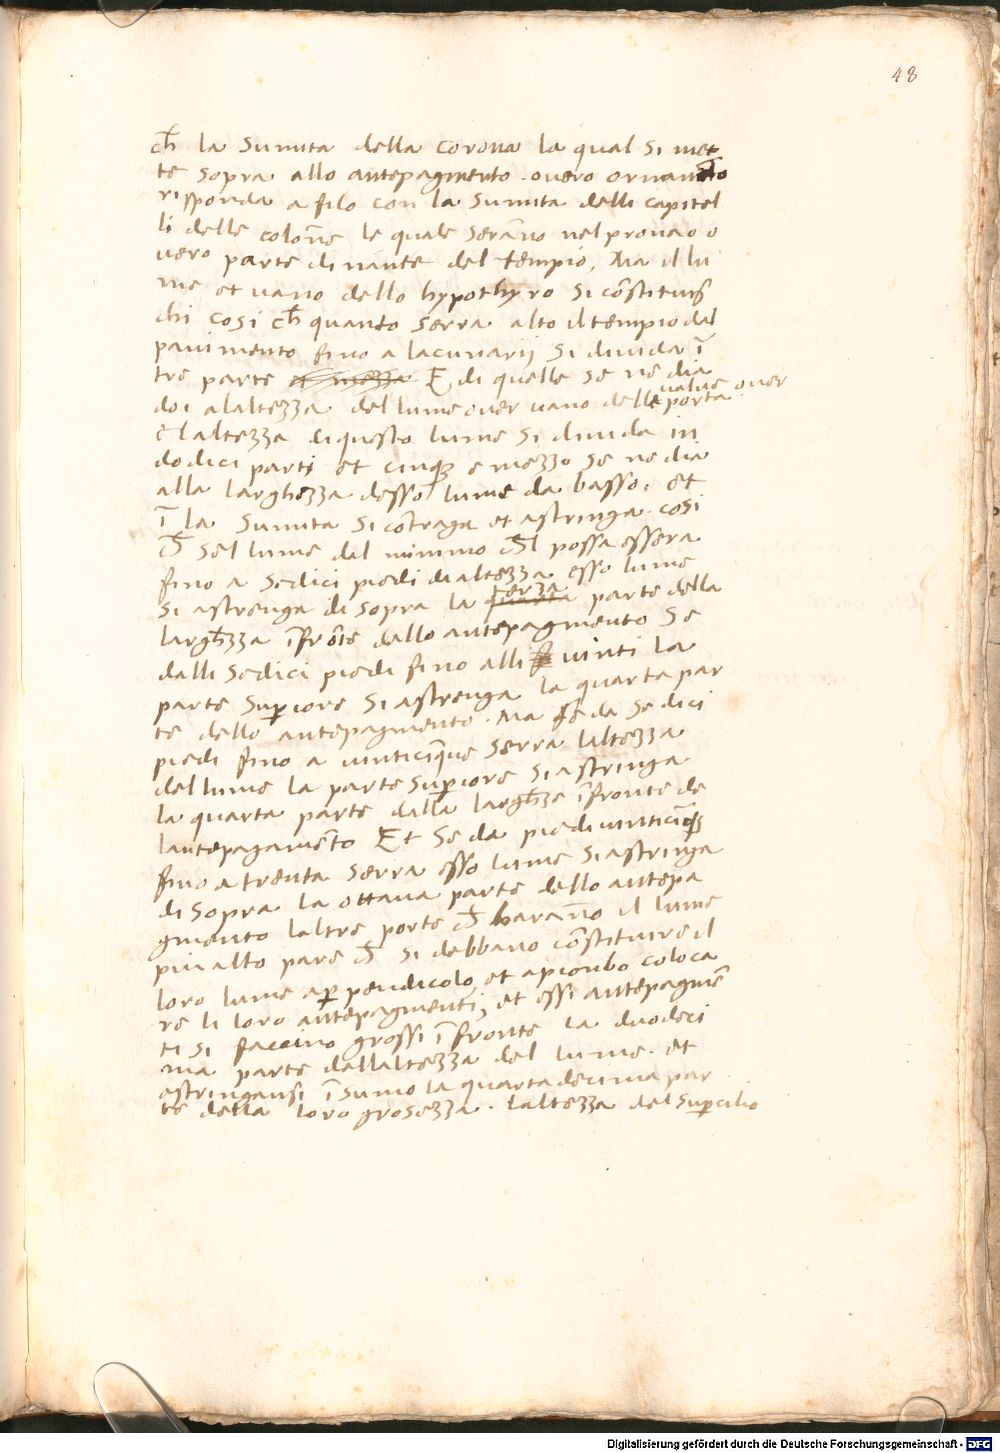 48
ch̄ la Sumita della corona la qual si met
te sopra allo antepagmento . overo ornamēto
risponda a filo con la sumita delli capitel
li delle colon̄e le quale seran̄o nel pronao o
vero parte di nante del tempio. Ma il lu
me et vano dello hypothyro si constituis
chi cosi ch̄ quanto serra alto il tempio dal
pavimento fino a lacunarij si divida ī
tre parte et mezza E di quelle se ne dia
doi alaltezza del lume over vano delle valve over porta
Et laltezza di questo lume si divida in
dodici parti et cinq; e mezzo se ne dia
alla larghezza desso lume da basso. et
ī la Sumita si cōtraga et astringa . cosi
ch̄ sel lume dal minimo ch̄l possa essera
fino a sedici piedi di altezza esso lume
si astrenga di sopra la quarta terza parte della
largh̄zza īfrōte dello antepagmento Se
dalli sedici piedi fino alli vinti la
parte sup̱iore si astrenga la quarta par
te dello antepagmento . Ma se da sedici
piedi fino a vinticīque serra laltezza
del lume la parte sup̱iore si astringa
la quarta parte dalla largh̄zza īfronte de
lantepagamēto Et se da piedi vinticīq;
fino a trenta serra esso lume si astringa
di sopra la ottava parte dello antepa
gmento laltre porte ch̄ haran̄o il lume
piu alto pare ch̄ si debbano cōstituire il
loro lume a p̱pendicolo, et a piombo coloca
re li loro antepagmenti, et essi antepagmē
ti si faccino grossi ī fronte la duodeci
ma parte dallaltezza del lume . et
astringansi ī sumo la quarta decima par
te della loro grosezza . laltezza del sup̱cilio
Digitalisierung gefördert durch die Deutsche Forschungsgemeinschaft - DFG